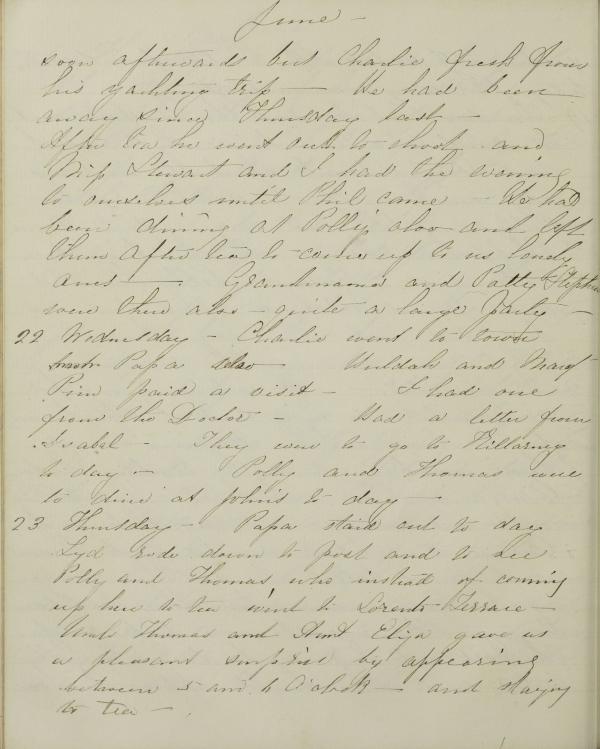 June –
soon afterwards but Charlie fresh from
his yachting trip — He had been
away since Thursday last –
After tea he went out to shoot and
Miss Stewart and I had the evening
to ourselves until Phil came – He had
been dining at Polly's also and left
them after tea to come up to us lonely
ones — Grandmama and Patty Stephens
were there also – quite a large party –
22 Wednesday – Charlie went to town
Papa also Huldah and Mary
Pim paid a visit – I had one
from the Doctor – Had a letter from
Isabel – They were to go to Killarney
to day – Polly and Thomas were
to dine at John's to day —
23 Thursday – Papa staid out to day
Lyd rode down to post and to see
Polly and Thomas who instead of coming
up here to tea went to Sorrento Terrace –
Uncle Thomas and Aunt Eliza gave us
a pleasant surprise by appearing
between 5 and 6 O'clock – and staying
to tea – .